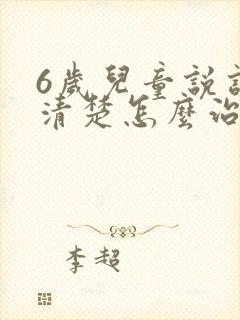 6歲兒童說
清楚怎麼治
李超